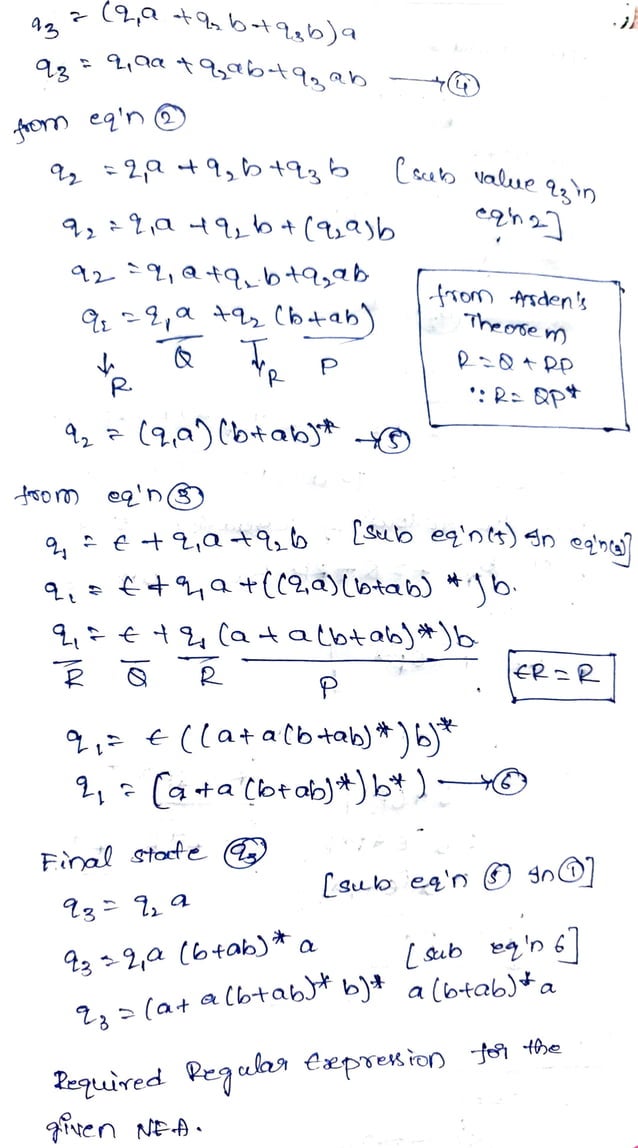 q3 = (q1a + q2b + q3b)a
q3 = q1aa + q2ab + q3ab → ④
from eq'n ②
q2 = q1a + q2b + q3b [sub value q3 in
eq'n 2]
q2 = q1a + q2b + (q2a)b
q2 = q1a + q2b + q2ab
q2 = q1a + q2(b+ab)
↓R Q ↓R P
from Arden's
Theorem
R = Q + RP
∵ R = QP*
q2 = (q1a)(b+ab)* → ⑤
from eq'n ③
q1 = ϵ + q1a + q2b. [sub eq'n(5) in eq'n(3)]
q1 = ϵ + q1a + ((q1a)(b+ab)*)b.
q1 = ϵ + q1(a + a(b+ab)*)b
R Q R P
ϵR = R
q1 = ϵ((a+a(b+ab)*)b)*
q1 = (a+a(b+ab)*)b*) → ⑥
Final state q3
[sub eq'n ⑤ in ①]
q3 = q2 a
q3 = q1a (b+ab)* a [sub eq'n 6]
q3 = (a + a(b+ab)* b)* a(b+ab)* a
Required Regular Expression for the
given NFA.